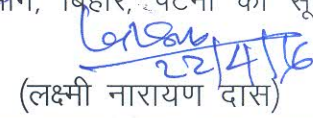 बिहार, पटना को सू
22/4/16
(लक्ष्मी नारायण दास)